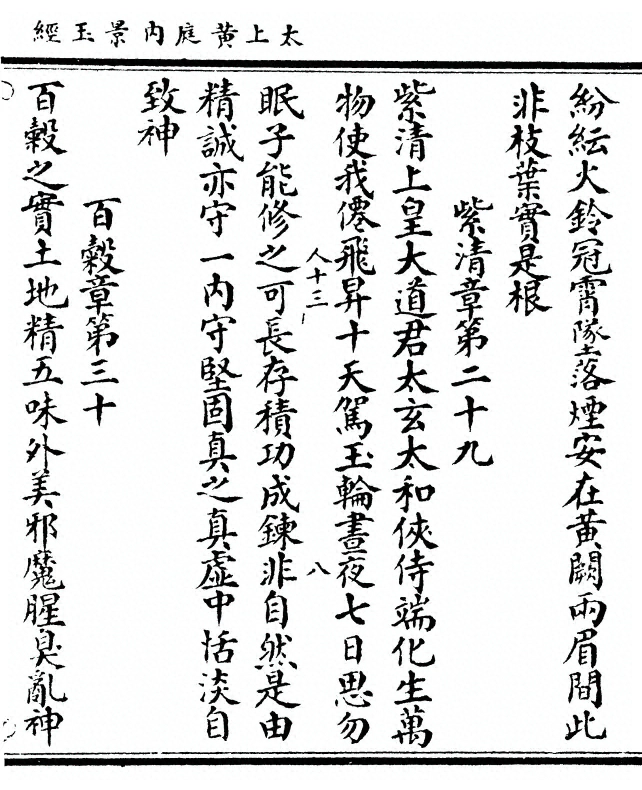 太上黃庭內景玉經
紛紜火鈴冠霄隊落煙安在黃闕兩眉間此
非枝葉實是根
紫清章第二十九
紫清上皇大道君太玄太和俠侍端化生萬
物使我僊飛昇十天駕玉輪晝夜七日思勿
人十三
八
眠子能修之可長存積功成鍊非自然是由
精誠亦守一內守堅固真之真虛中恬淡自
致神
百穀章第三十
百穀之實土地精五味外美邪魔腥臭亂神